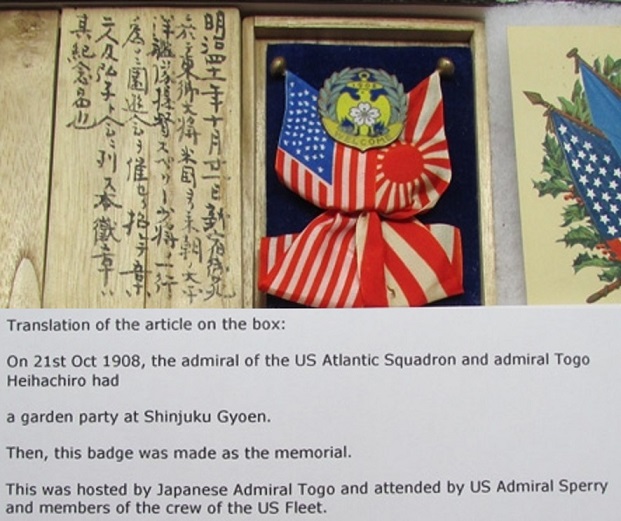 明治四十一年十月廿一日新宿御苑
於テ東郷大将米国ヨリ来朝ノ太平
洋艦隊提督スペリー少将一行
為ニ園遊会ヲ催
会ニ列ス本徽章ハ
其紀念品也
1908
WELCOME
Translation of the article on the box:
On 21st Oct 1908, the admiral of the US Atlantic Squadron and admiral Togo
Heihachiro had
a garden party at Shinjuku Gyoen.
Then, this badge was made as the memorial.
This was hosted by Japanese Admiral Togo and attended by US Admiral Sperry
and members of the crew of the US Fleet.